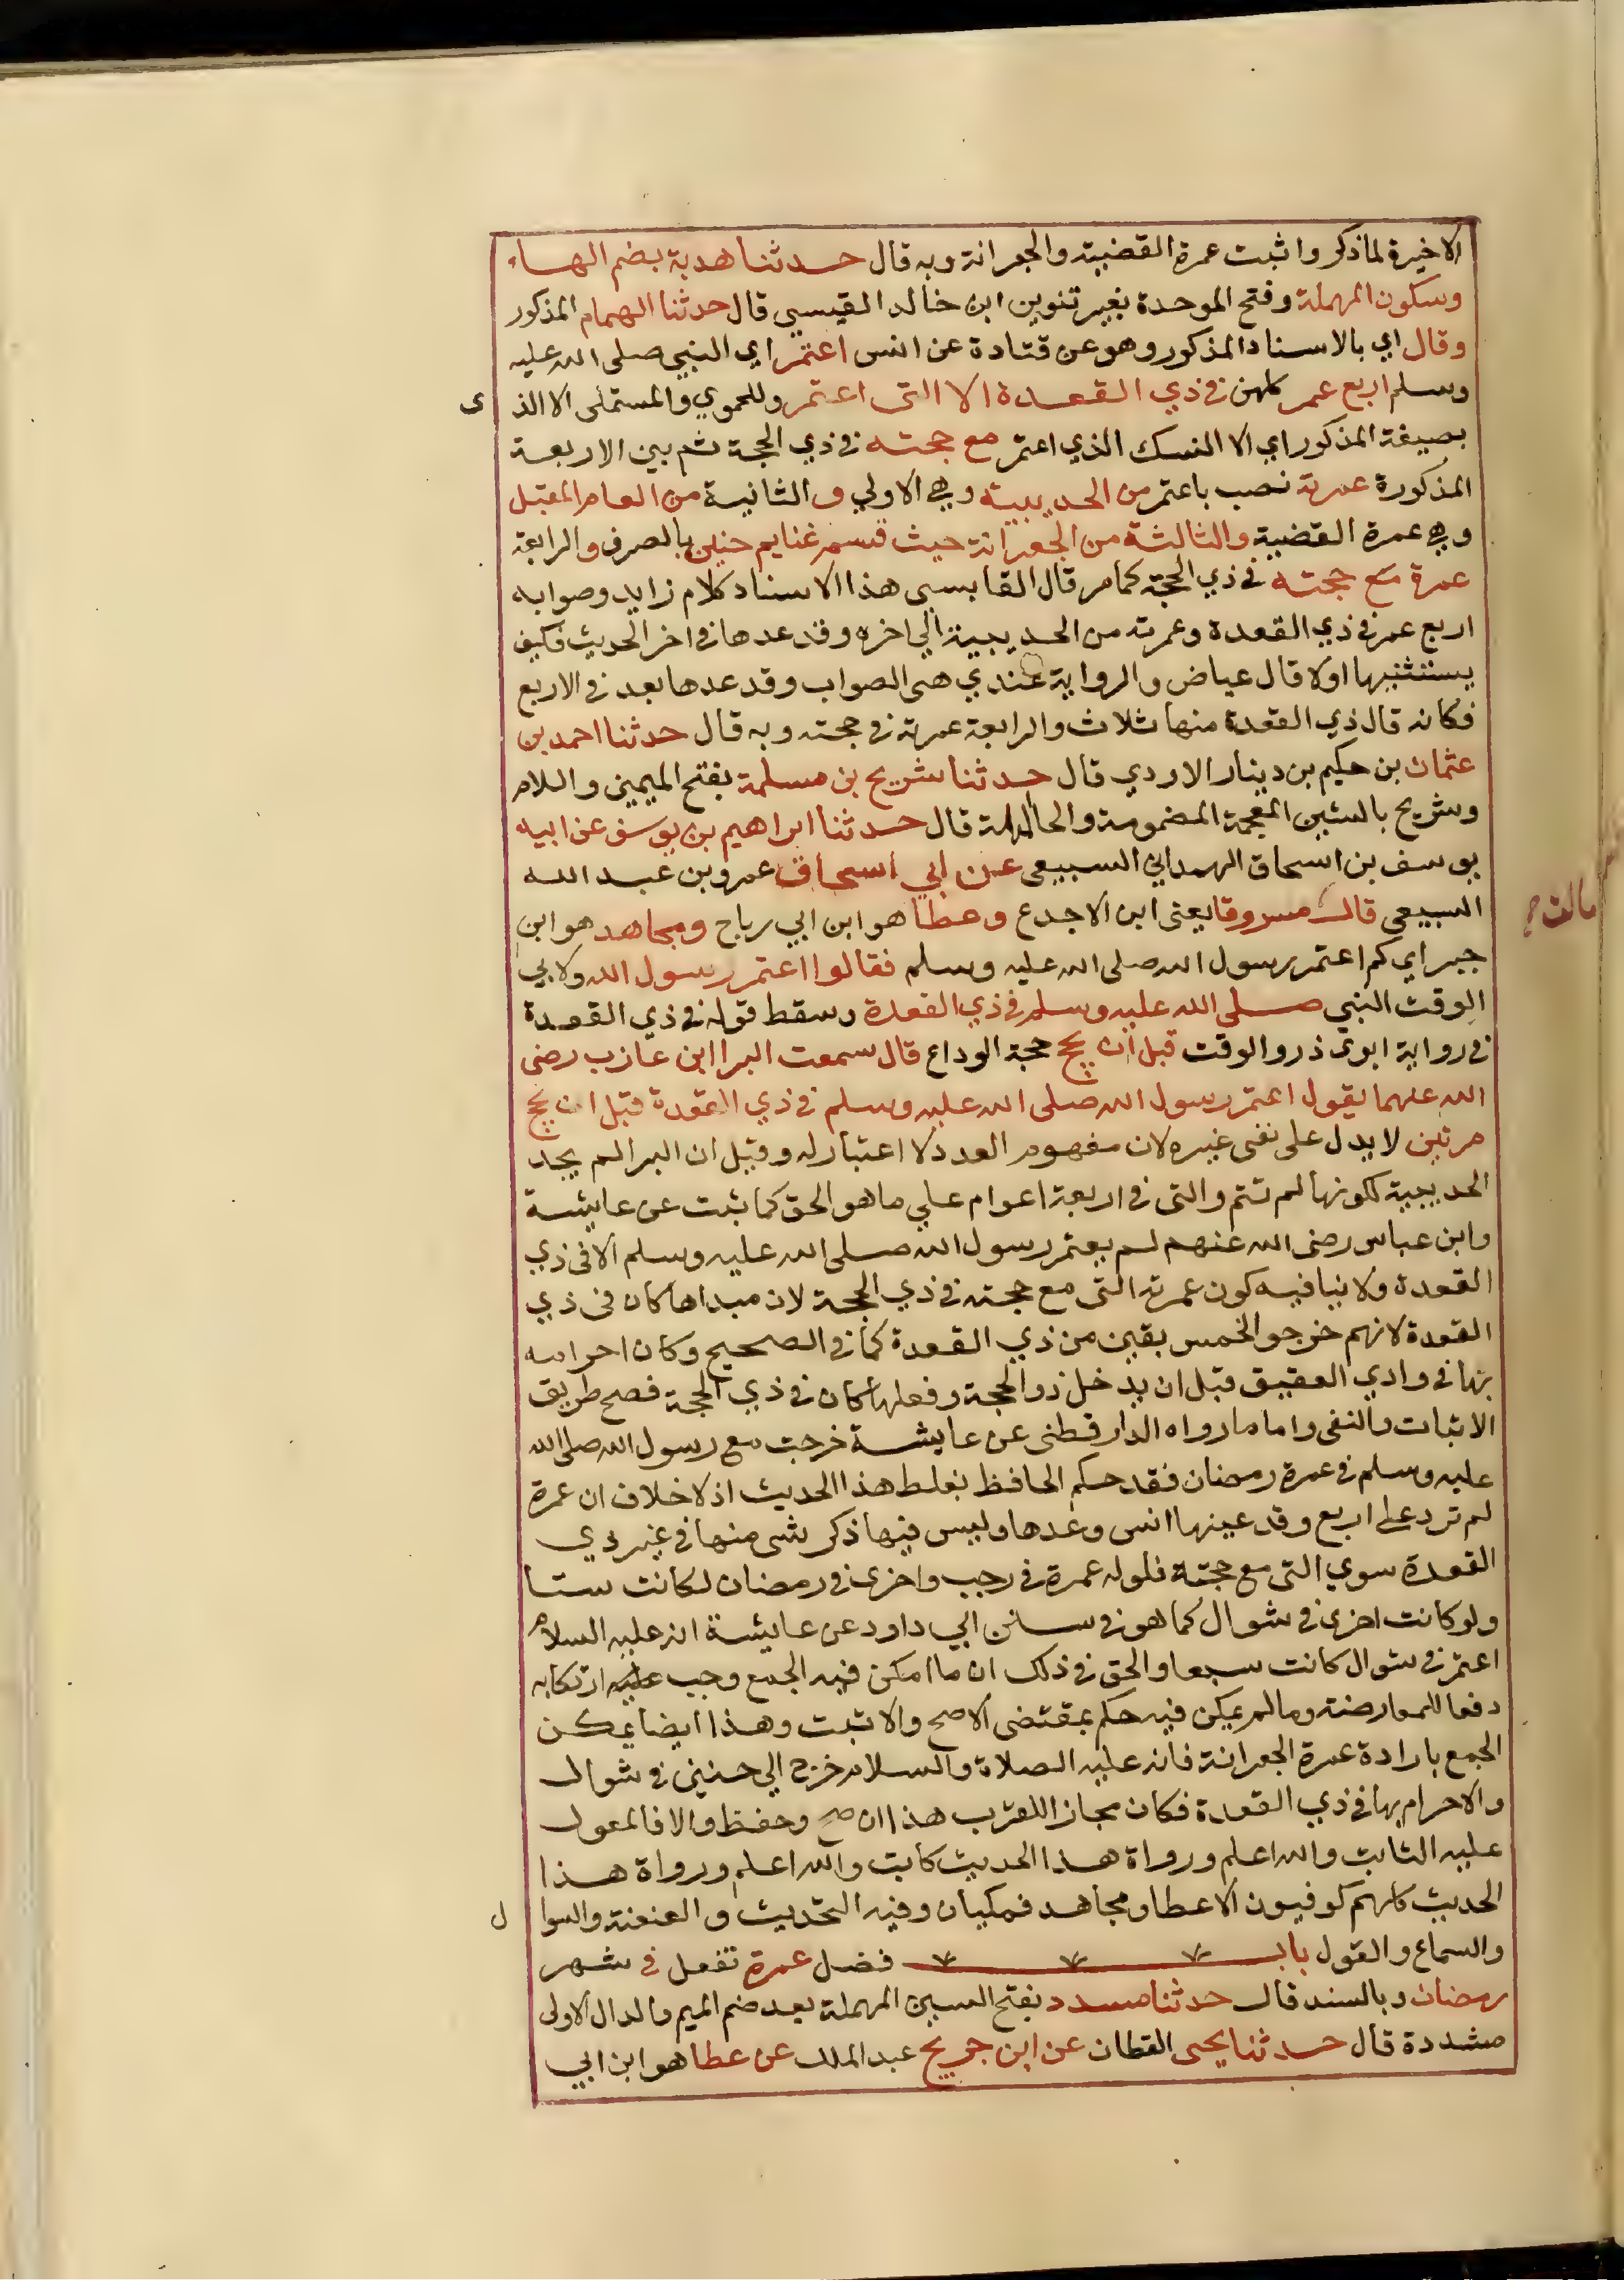 الاخيرة لماذكر واثبت عمرة القضية والجعرانة وبه قال حدثنا هدبة بضم الهاء
وسكون المهملة وفتح الموحدة بغير تنوين ابن خالد القيسي قال حدثنا الهمام المذكور
وقال اي بالاسناد المذكور وهو عن قتادة عن انس اعتمر اي النبي صلى الله عليه
وسلم اربع عمر كلهن في ذي القعدة الا التى اعتمر وللحموي والمستملى الا الذ ى
بصيغة المذكور اي الا النسك الذي اعتمر مع حجته في ذي الحجة ثم بين الاربعة
المذكورة عمرته نصب باعتمر من الحديبية وهي الاولي والثانية من العام المقبل
وهي عمرة القضية والثالثة من الجعرانة حيث قسم غنايم حنين بالصرف والرابعة
عمرة مع حجته في ذي الحجة كما مر قال القابسي هذا الاسناد كلام زايد وصوابه
اربع عمر في ذي القعدة وعمرته من الحديبية الي اخره وقد عدها في اخر الحديث فكيف
يستثنيها اولا قال عياض والرواية عندي هي الصواب وقد عدها بعد في الاربع
فكانه قال ذي القعدة منها ثلاث والرابعة عمرته في حجته وبه قال حدثنا احمد بن
عثمان بن حكيم بن دينار الاودي قال حدثنا شريح بن مسلمة بفتح الميمين واللام
وشريح بالشين المعجمة المضمومة والحا المهملة قال حدثنا ابراهيم بن يوسف عن ابيه
يوسف بن اسحاق الهمداني السبيعي عن ابي اسحاق عمرو بن عبد الله
السبيعي قال مسروقا يعنى ابن الاجدع وعطا هو ابن ابي رباح ومجاهد هو ابن
جبر اي كم اعتمر رسول الله صلى الله عليه وسلم فقالوا اعتمر رسول الله ولابي
الوقت النبي صلى الله عليه وسلم في ذي القعدة وسقط قوله في ذي القعدة
في رواية ابوى ذر والوقت قبل ان يحج حجة الوداع قال سمعت البرا ابن عازب رضى
الله عنهما يقول اعتمر رسول الله صلى الله عليه وسلم في ذي القعدة قبل ان يحج
مرتين لا يدل على نفى غيره لان مفهوم العدد لا اعتبار له وقيل ان البرا لم يعد
الحديبية لكونها لم تتم والتى في اربعة اعوام علي ما هو الحق كما ثبت عن عايشة
وابن عباس رضى الله عنهم لم يعتمر رسول الله صلى الله عليه وسلم الا في ذي
القعدة ولا ينافيه كون عمرته التى مع حجته في ذي الحجة لان مبداها كان في ذي
القعدة لانهم خرجوا لخمس بقين من ذي القعدة كما في الصحيح وكان احرامه
بها في وادي العقيق قبل ان يدخل ذو الحجة وفعلها كان في ذي الحجة فصح طريق
الاثبات والنفى واما ما رواه الدارقطنى عن عايشة خرجت مع رسول الله صلى الله
عليه وسلم في عمرة رمضان فقد حكم الحافظ بغلط هذا الحديث اذ لا خلاف ان عمرة
لم تزد على اربع وقد عينها انس وعدها وليس فيها ذكر شى منها في غير ذي
القعدة سوي التى مع حجته فلو له عمرة في رجب واخرى في رمضان لكانت ستا
ولو كانت اخرى في شوال كما هو في سنن ابي داود عن عايشة انه عليه السلام
اعتمر في شوال كانت سبعا والحق في ذلك ان ما امكن فيه الجمع وجب عليه ارتكابه
دفعا للمعارضة وما لم يمكن فيه حكم بمقتضى الاصح والاثبت وهذا ايضا يمكن
الجمع بارادة عمرة الجعرانة فانه عليه الصلاة والسلام خرج الي حنين في شوال
والاحرام بها في ذي القعدة فكان مجازا للقرب هذا ان صح وحفظ والا فالمعول
عليه الثابت والله اعلم ورواة هذا الحديث كابت والله اعلم ورواة هذا
الحديث كلهم كوفيون الا عطا ومجاهد فمكيان وفيه التحديث والعنعنة والسوا ل
والسماع والقول باب فضل عمرة تفعل في شهر
رمضان وبالسند قال حدثنا مسدد بفتح السين المهملة بعد ضم الميم والدال الاولى
مشددة قال حدثنا يحيى القطان عن ابن جريج عبد الملك عن عطا هو ابن ابي